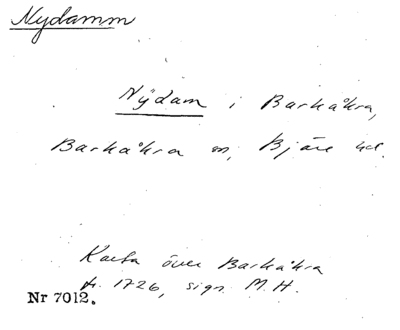 Nydamm
Nÿdam i Barkåkra,
Barkåkra sn, Bjäre hd.
Karta över Barkåkra
fr. 1726, sign. M.H.
Nr 7012.